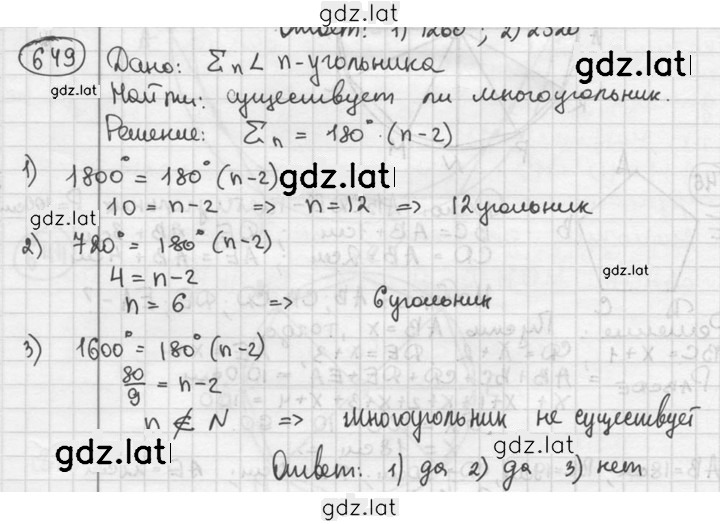 gdz.lat
Ответ: 1) 1260°; 2) 2520
649 Дано: Σn∠ n-угольника
gdz.lat
gdz.lat
Найти: существует ли многоугольник.
Решение: Σn = 180°·(n-2)
1) 1800° = 180°(n-2)
gdz.lat
10 = n-2 => n=12 => 12угольник
gdz.lat
2) 720° = 180°(n-2)
4 = n-2
gdz.lat
n = 6 => 6угольник
3) 1600° = 180°(n-2)
80/9 = n-2
n ∉ N => многоугольник не существует
gdz.lat
gdz.lat
Ответ: 1) да 2) да 3) нет
gdz.lat